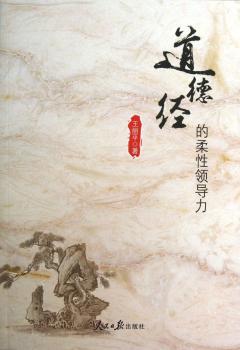 道德经
的柔性领导力
王丽平 著
人民日报出版社